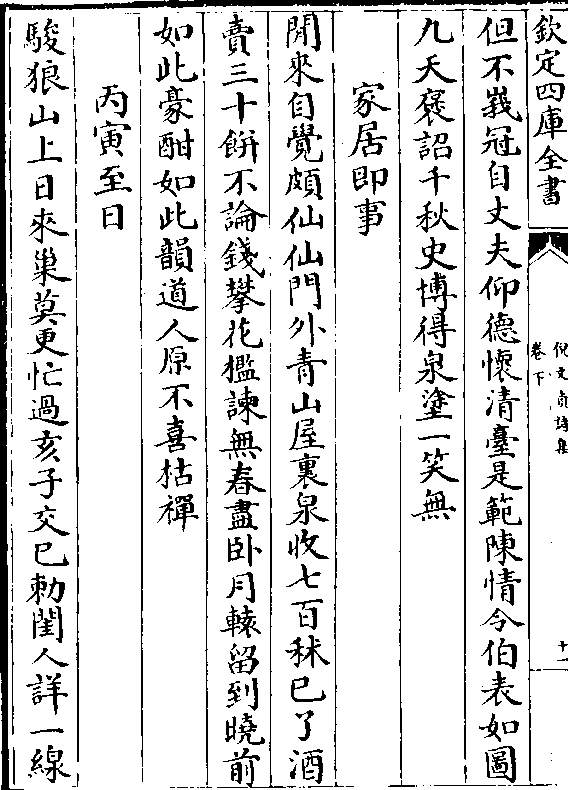 欽定四庫全書
倪文貞詩集
卷下
十一
但不峩冠自丈夫仰德懷清臺是範陳情令伯表如圖
九天褒詔千秋史博得泉塗一笑無
家居即事
閒來自覺頗仙仙門外青山屋裏泉收七百秫已了酒
賣三十餅不論錢攀花檻諫無春盡卧月轅留到曉前
如此豪酣如此韻道人原不喜枯禪
丙寅至日
駿狼山上日來巢莫更忙過亥子交已勅閨人詳一線